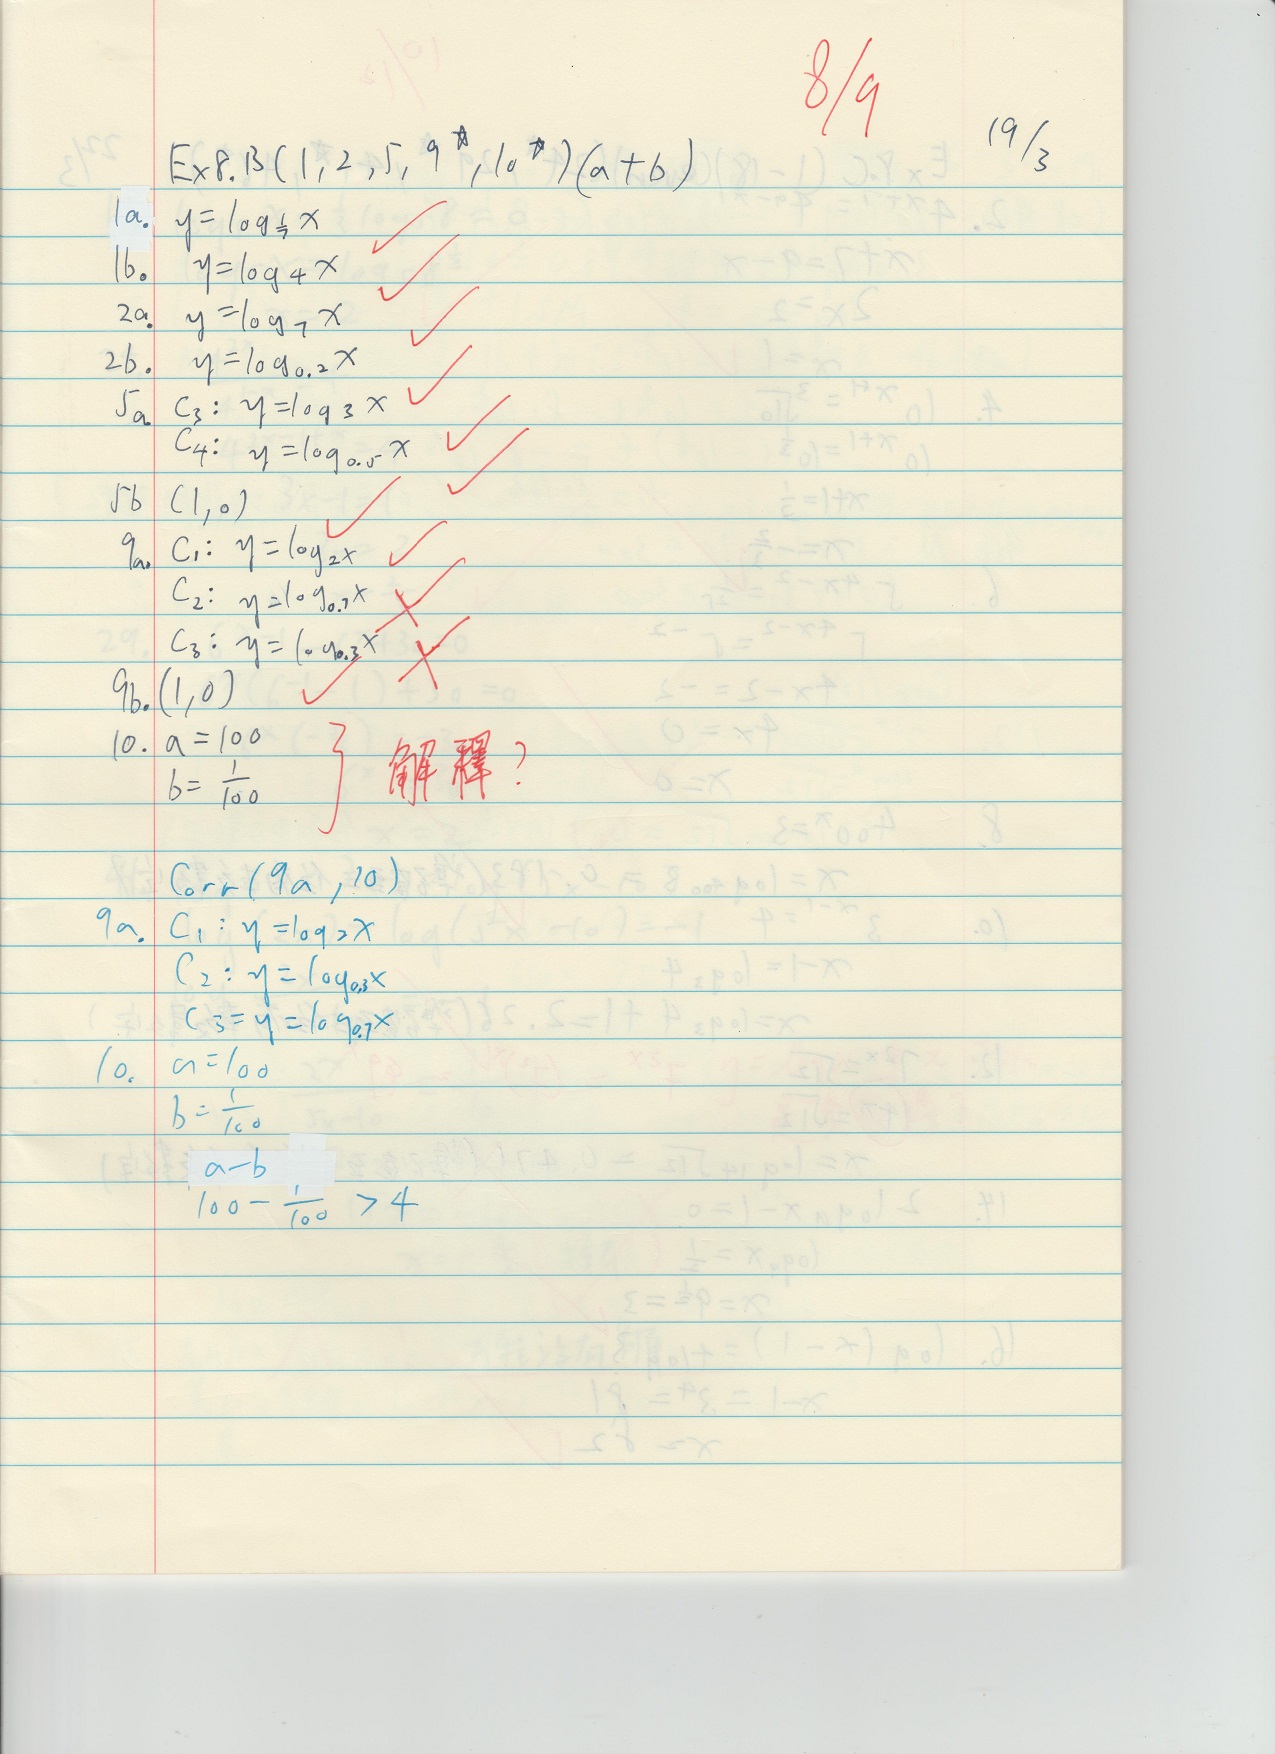 8/9
19/3
Ex8.B(1,2,5,9*,10*)(a+b)
1a. y=log 1/7 x
1b. y=log4x
2a. y=log7x
2b. y=log0.2x
5a C3: y=log3x
C4: y=log0.5x
5b (1,0)
9a. C1: y=log2x
C2: y=log0.7x
C3: y=log0.3x
9b. (1,0)
10. a=100
b=1/100
解釋?
Corr(9a,10)
9a. C1: y=log2x
C2: y=log0.3x
C3=y=log0.7x
10. a=100
b=1/100
a-b
100-1/100>4